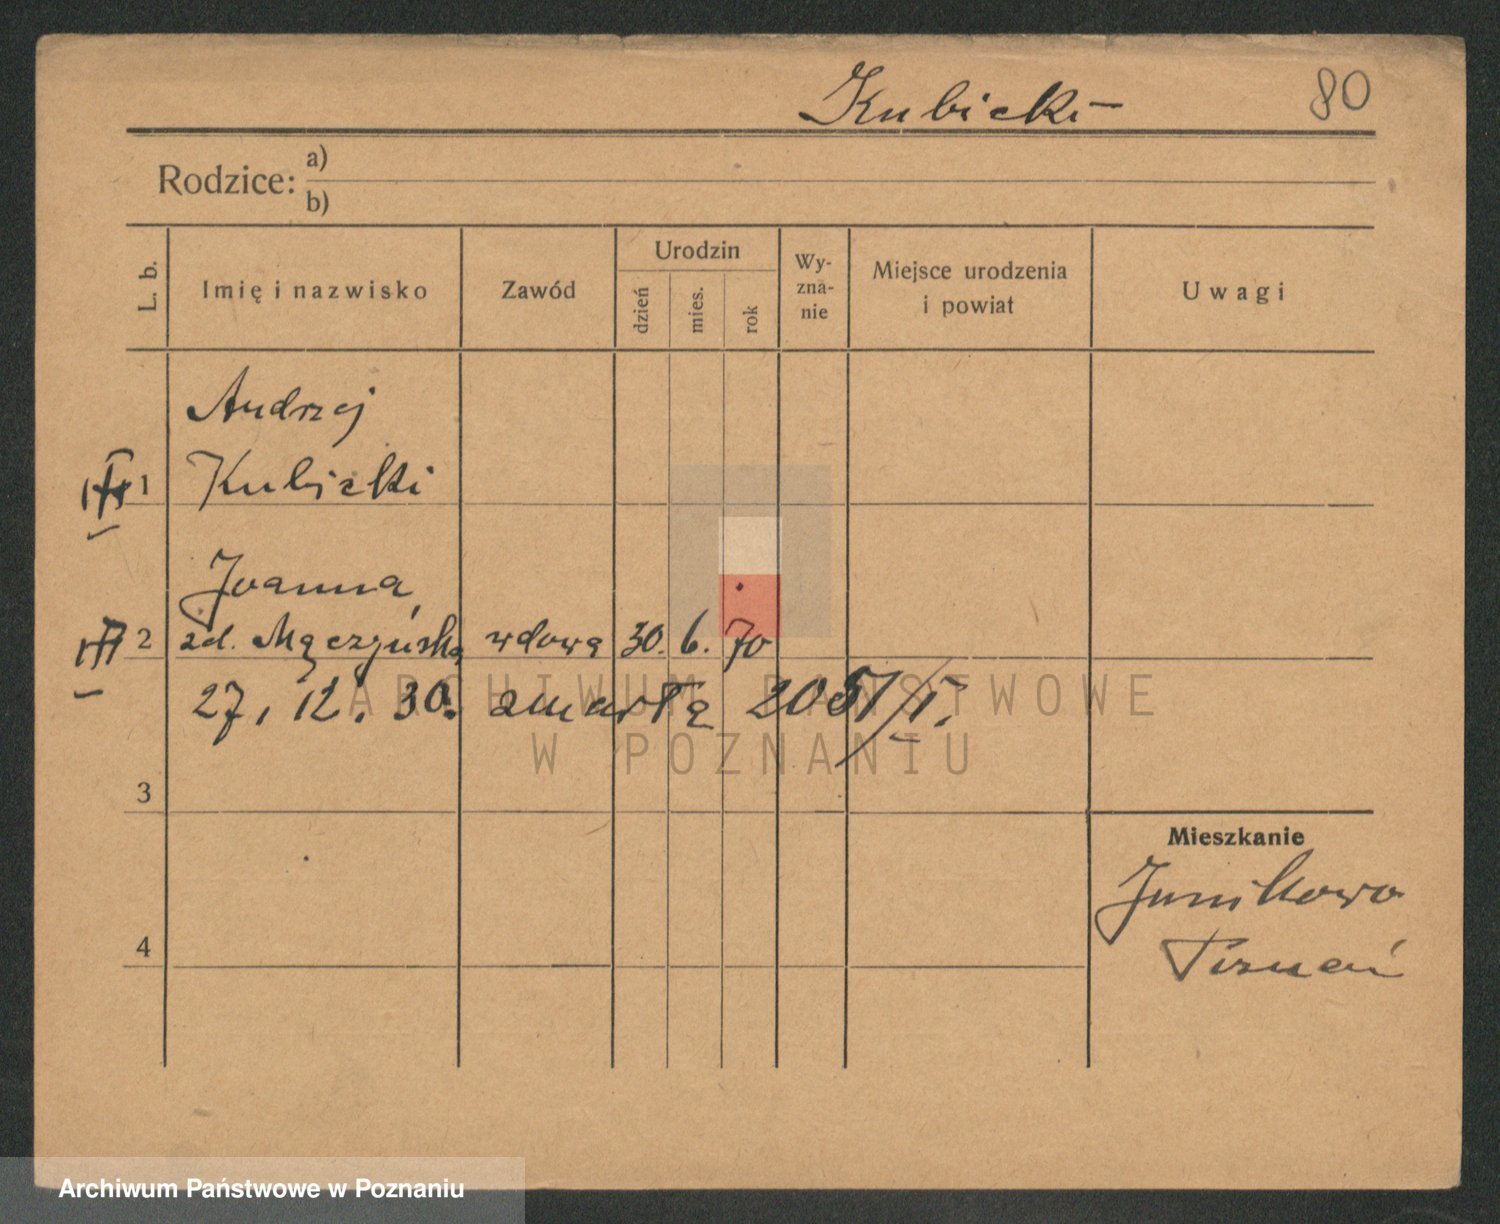 Kubicki
80
Rodzice: a)
b)
L. b.
Imię i nazwisko
Zawód
Urodzin
dzień
mies.
rok
Wy-
zna-
nie
Miejsce urodzenia
i powiat
Uwagi
Andrzej
1 Kubicki
Joanna
2 zd. Mączyńska wdowa 30. 6. 70
27. 12. 30. zmarła 2051/I.
3
Mieszkanie
Junikowo
4 Poznań
ARCHIWUM PAŃSTWOWE
W POZNANIU
Archiwum Państwowe w Poznaniu